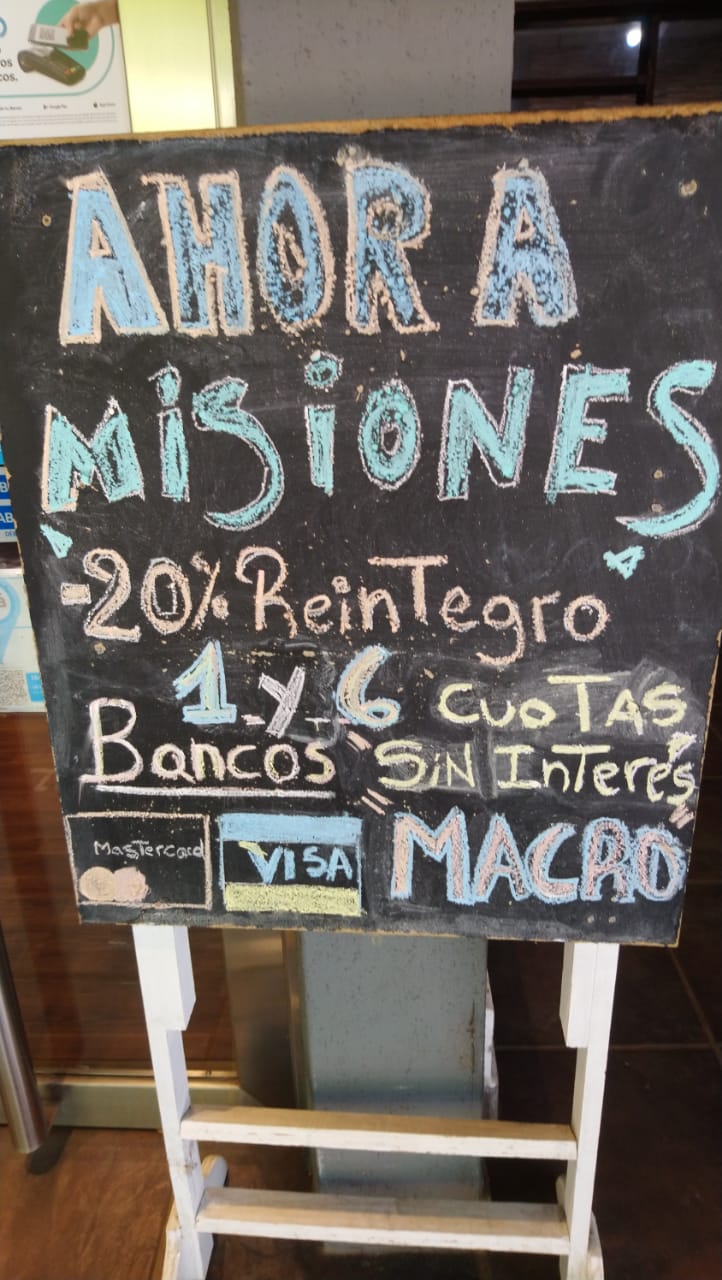 AHORA
MiSiONES
-20% ReinTegro
1 y 6 cuoTAS
Bancos SiN InTerés
MasTercard VISA MACRO
Google Play